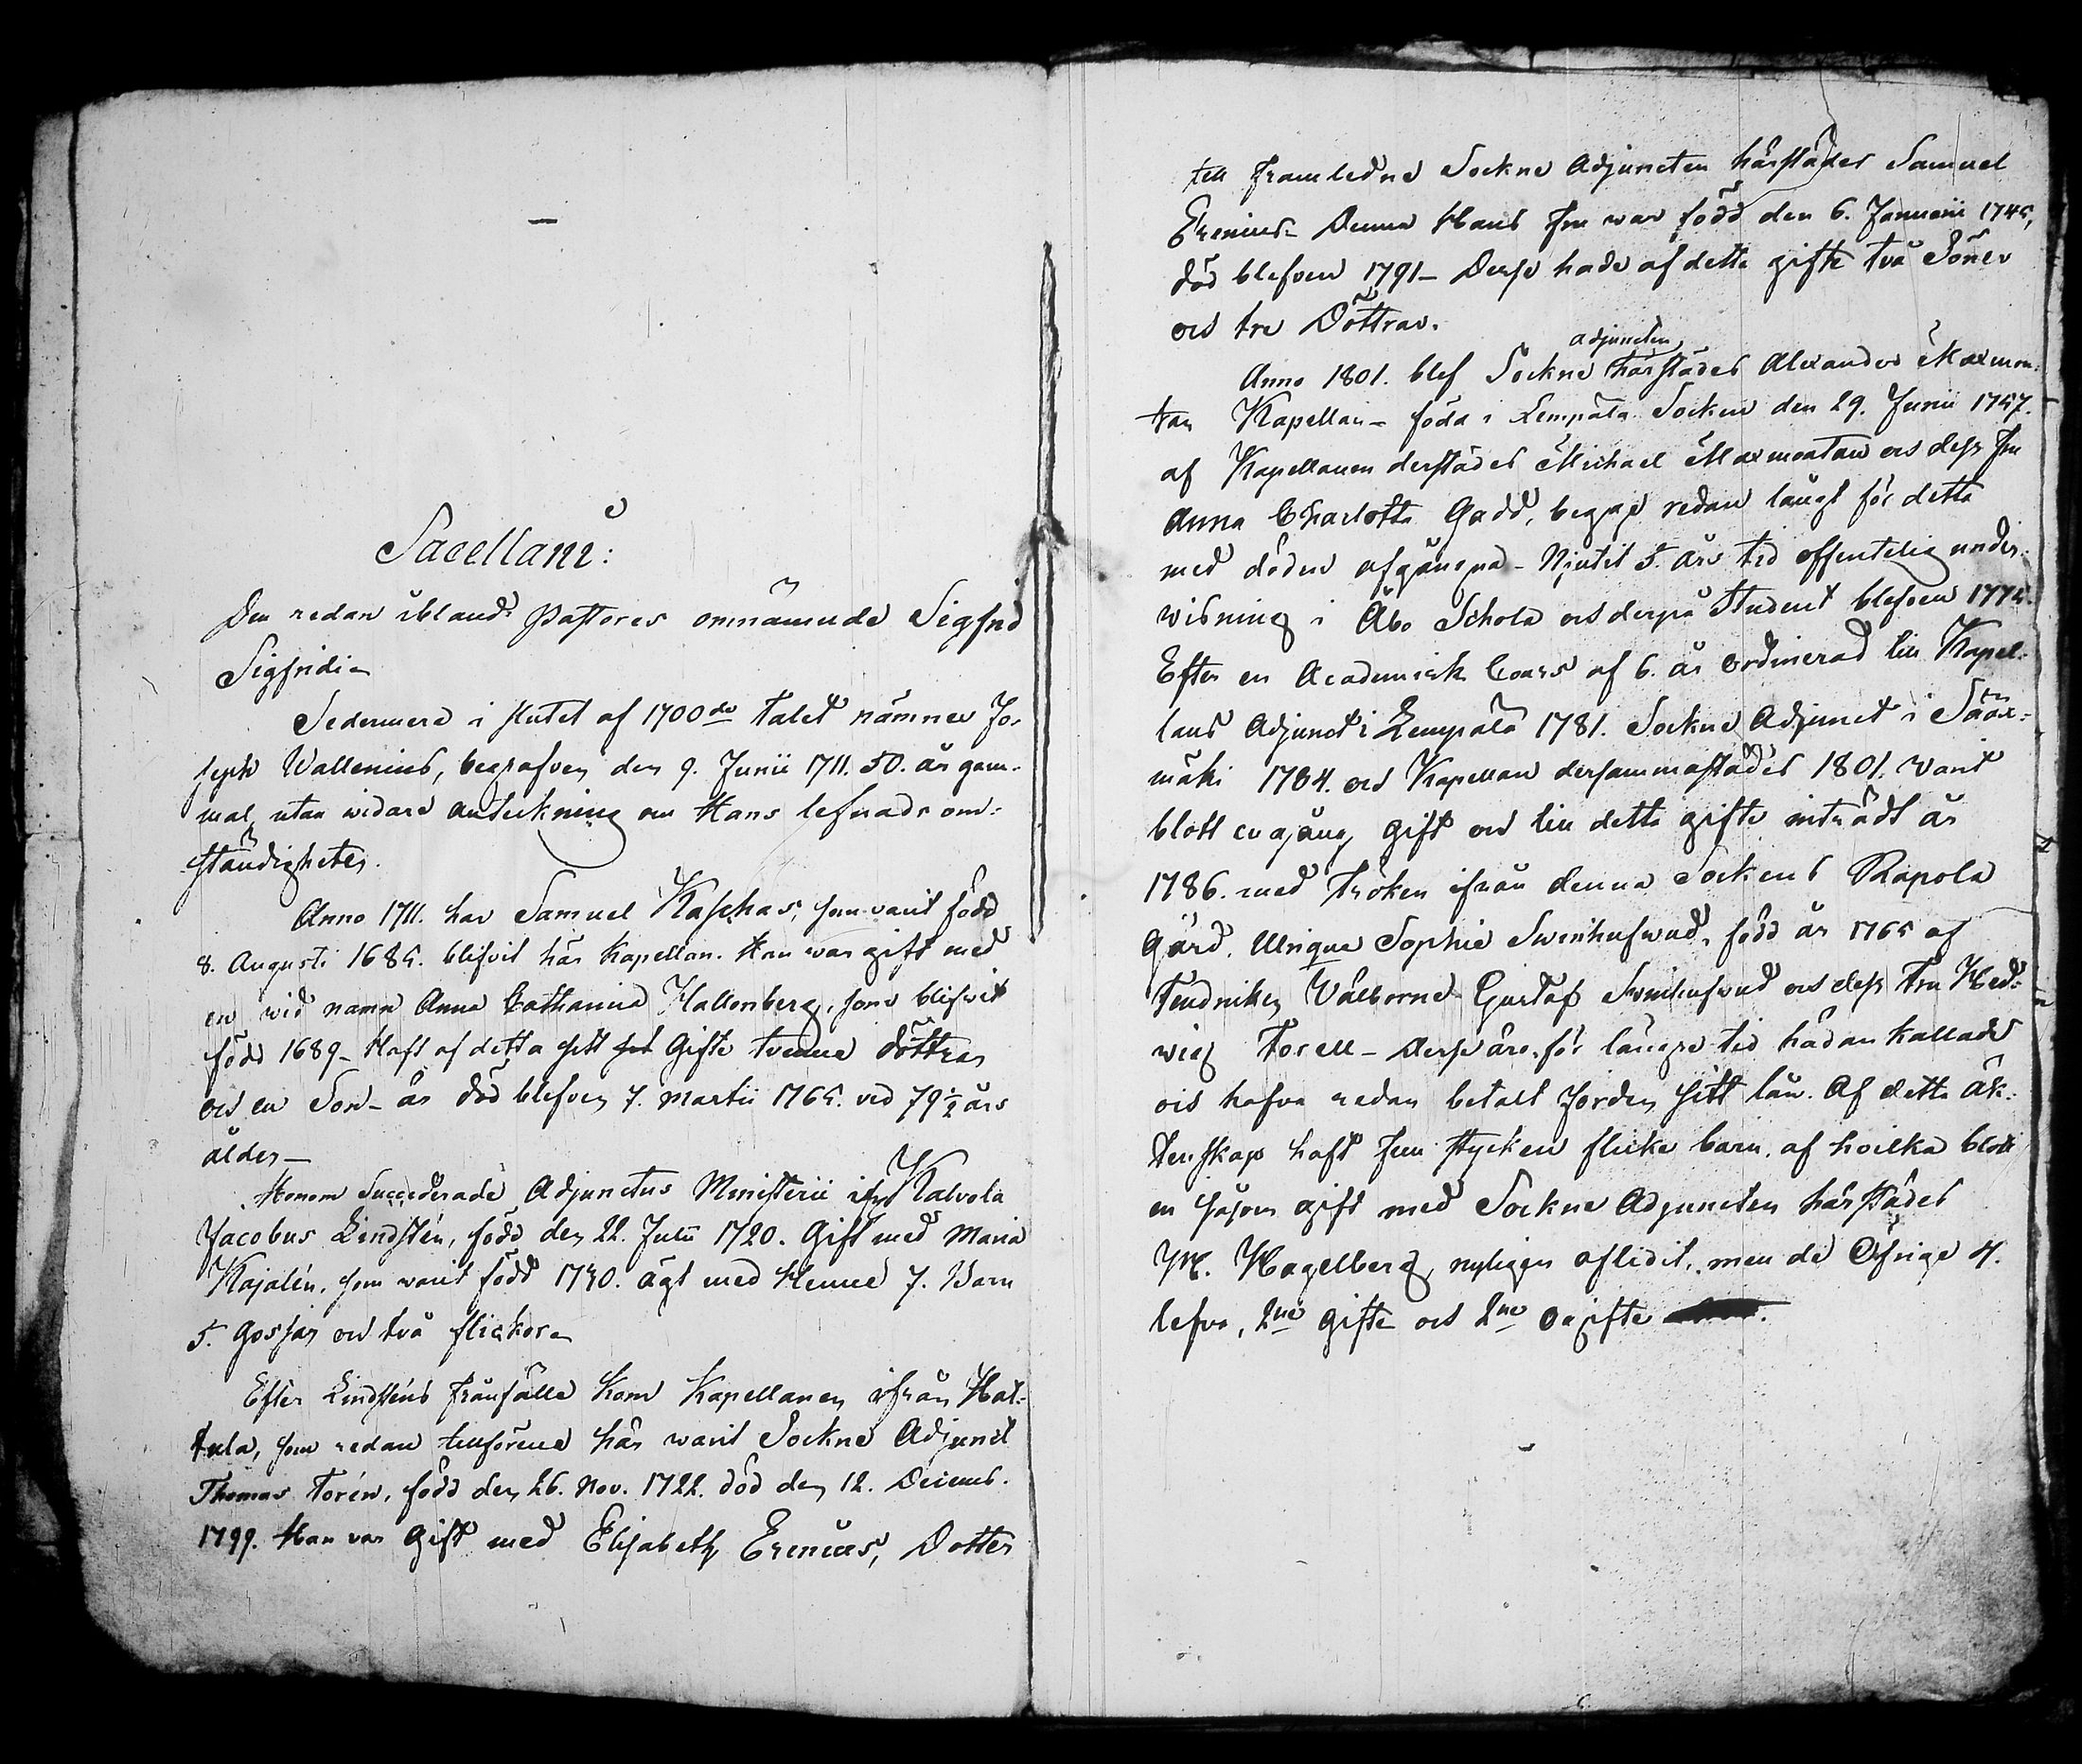 Sacellani:
Den redan ibland Pastores omnämnde Sigfrid
Sigfridi-
Sedermera i slutet af 1700de talet nämnes Jo-
seph Wallenius, begrafven den 9. Junii 1711. 50. år gam-
mal, utan widare anteckning om Hans lefnads om-
ständigheter.
Anno 1711. har Samuel Kaschas, som varit född
8. Augusti 1685. blifvit här Kapellan. Han war gift med
en wid namn Anna Catharina Hallenberg, som blifvit
född 1689- Haft af detta sitt Gifte tvenne döttrar
och en Son- är död blefven 7. Martii 1765. vid 79½ års
ålder-
Honom Succederade Adjunctus Ministerii ifrån Kalvola
Jacobus Lindstén, född den 22. Julii 1720. Gift med Maria
Kajalén, som varit född 1730. ägt med Henne 7. Barn
5. Gossar och två flickor-
Efter Lindsténs frånfälle kom Kapellanen ifrån Hat-
tula, som redan tillförene här warit Sockne Adjunct
Thomas Torén, född den 26. Nov. 1722. död den 12. Decemb.
1799. Han var Gift med Elisabeth Erenius, Dotter
till framledne Sockne Adjuncten härstädes Samuel
Erenius- Denna Hans Fru war född den 6. Januarii 1745,
död blefven 1791- Desse hade af detta gifte två Söner
och tre Döttrar.
adjuncten
Anno 1801. blef Sockne härstädes Alexander Maxmon-
tan Kapellan- föda i Lempäla Socken den 29. Junii 1757.
af Kapellanen derstädes Michael Maxmontan och dess Fru
Anna Charlotta Gadd, begge redan längst för detta
med döden afgångna- Njutit 5. års tid offentelig under-
visning i Åbo Schola och derpå Student blefven 1775.
Efter en Academisk Cours af 6. år ordinerad till Kapel-
lans Adjunct i Lempälä 1781. Sockne Adjunct i Sääx-
mäki 1784. och Kapellan dersammastädes 1801. Varit
blott en gång gift och till detta gifte inträdt år
1786. med Fröken ifrån denna Sockens Rapola
Gård, Ulrique Sophie Svinhufvud, född år 1765 af
Fendriken Välborne Gustaf Svinhufvud och dess Fru Hed-
wig Forell- Desse äro för längre tid hädan kallade
och hafva redan betalt Jorden sitt lån. Af detta äk-
tenskap haft fem stycken flicke barn, af hvilka blott
en såsom gift med Sockne Adjuncten härstädes
M. Hagelberg, nyligen aflidit, men de Öfrige 4.
lefva, 2ne gifte och 2ne ogifte